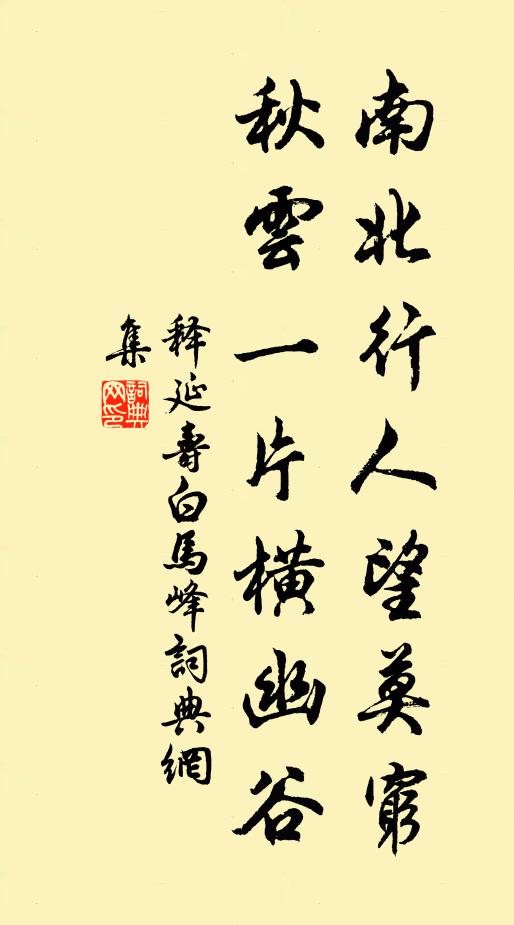 南北行人望莫窮
秋雲一片橫幽谷
释延壽白馬峰詞典網
集
詞典
网印